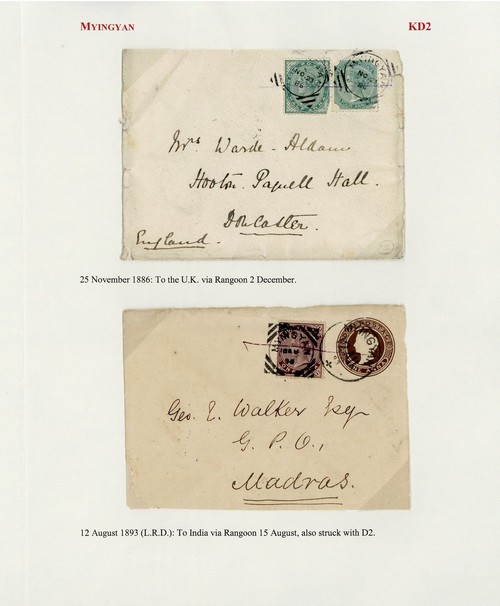 MYINGYAN KD2
Mrs Warde-Aldam
Hooton Pagnell Hall.
Doncaster.
England.
25 November 1886: To the U.K. via Rangoon 2 December.
MYINGYAN
Geo. E. Walker Esqr
G. P. O.,
Madras.
12 August 1893 (L.R.D.): To India via Rangoon 15 August, also struck with D2.